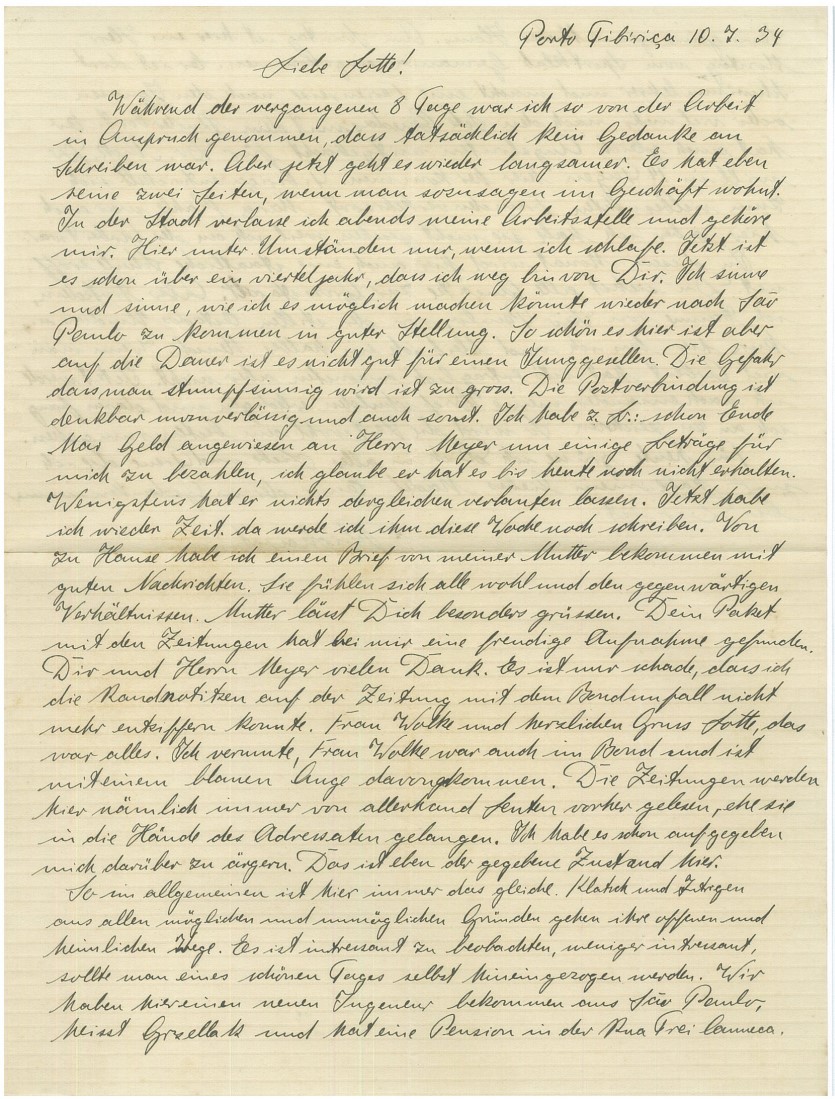 Porto Tibiriça 10. 7. 34
Liebe Lotte!
Während der vergangenen 8 Tage war ich so von der Arbeit
in Anspruch genommen, dass tatsächlich kein Gedanke an
Schreiben war. Aber jetzt geht es wieder langsamer. Es hat eben
seine zwei Seiten, wenn man sozusagen im Geschäft wohnt.
In der Stadt verlasse ich abends meine Arbeitsstelle und gehöre
mir. Hier unter Umständen nur, wenn ich schlafe. Jetzt ist
es schon über ein vierteljahr, dass ich weg bin von Dir. Ich sinne
und sinne, wie ich es möglich machen könnte wieder nach São
Paulo zu kommen in guter Stellung. So schön es hier ist aber
auf die Dauer ist es nicht gut für einen Junggesellen. Die Gefahr
dass man stumpfsinnig wird ist zu gross. Die Postverbindung ist
denkbar unzuverlässig und auch sonst. Ich habe z. B.: schon Ende
Mai Geld angewiesen an Herrn Meyer um einige Beträge für
mich zu bezahlen, ich glaube er hat es bis heute noch nicht erhalten.
Wenigstens hat er nichts dergleichen verlauten lassen. Jetzt habe
ich wieder Zeit. da werde ich ihm diese Woche noch schreiben. Von
zu Hause habe ich einen Brief von meiner Mutter bekommen mit
guten Nachrichten. Sie fühlen sich alle wohl und den gegenwärtigen
Verhältnissen. Mutter lässt Dich besonders grüssen. Dein Paket
mit den Zeitungen hat bei mir eine freudige Aufnahme gefunden.
Dir und Herrn Meyer vielen Dank. Es ist nur schade, dass ich
die Randnotitzen auf der Zeitung mit dem Bondunfall nicht
mehr entziffern konnte. Frau Wolke und herzlichen Gruss Lotte, das
war alles. Ich vermute, Frau Wolke war auch im Bond und ist
mit einem blauen Auge davongekommen. Die Zeitungen werden
hier nämlich immer von allerhand Leuten vorher gelesen, ehe sie
in die Hände des Adressaten gelangen. Ich habe es schon aufgegeben
mich darüber zu ärgern. Das ist eben der gegebene Zustand hier.
So im allgemeinen ist hier immer das gleiche. Klatsch und
aus allen möglichen und unmöglichen Gründen gehen ihre offenen und
heimlichen Wege. Es ist intressant zu beobachten, weniger intressant,
sollte man eines schönen Tages selbst hineingezogen werden. Wir
haben hier einen neuen Ingeneur bekommen aus São Paulo,
heisst und hat eine Pension in der Rua Frei Canneca.